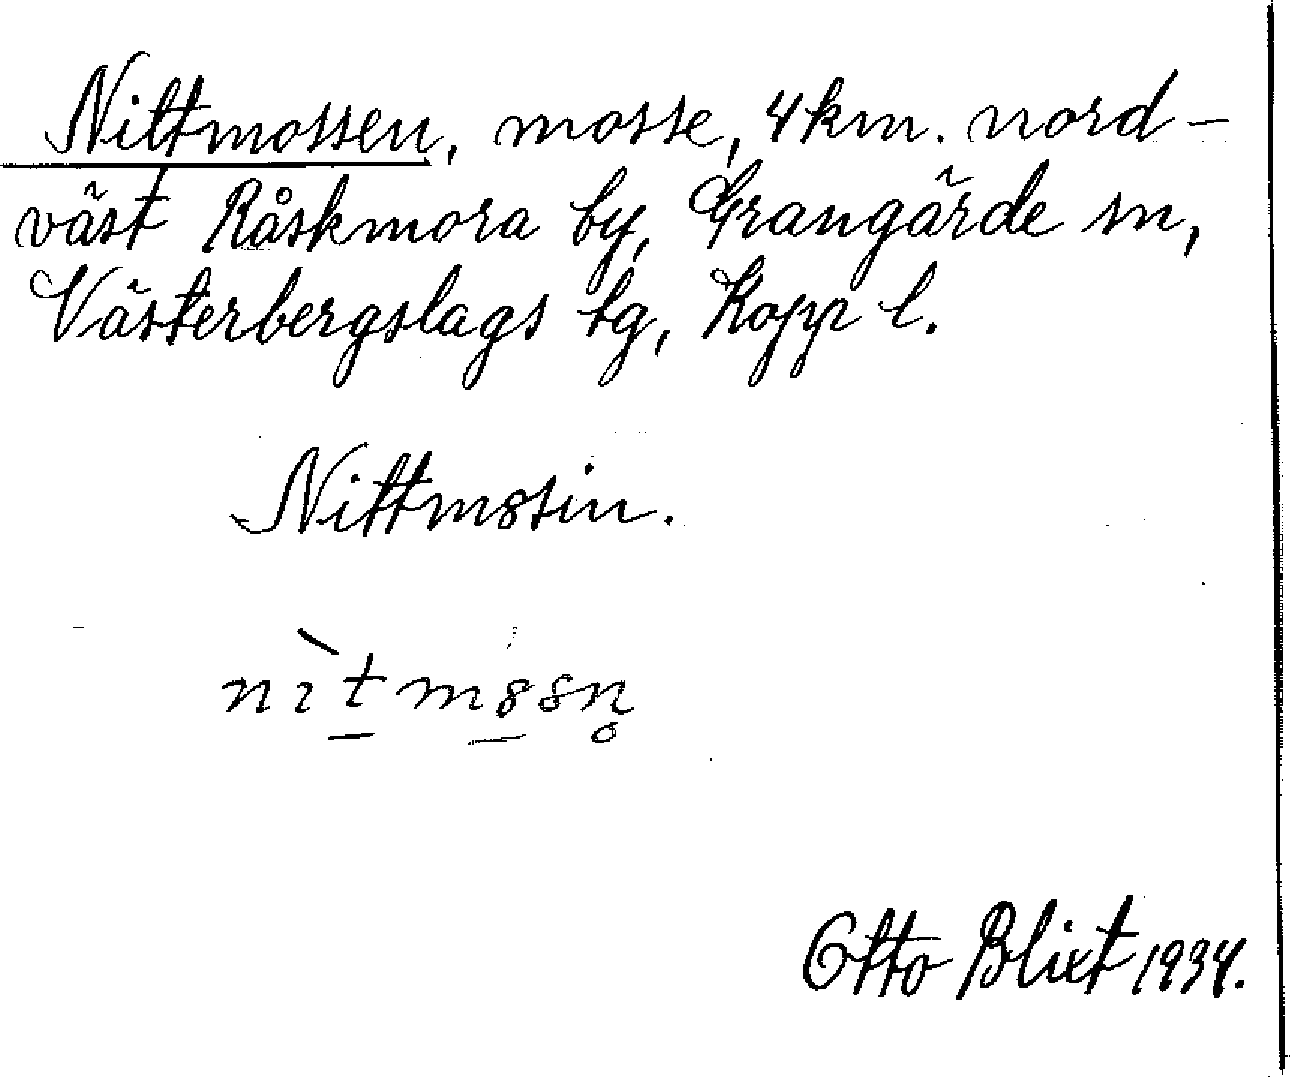 Nittmossen, mosse, 4 km. nord-
väst Råskmora by, Grangärde sn,
Västerbergslags tg, Kopp l.
Nittm8sin.
nìtm8sn̥
Otto Blixt 1934.